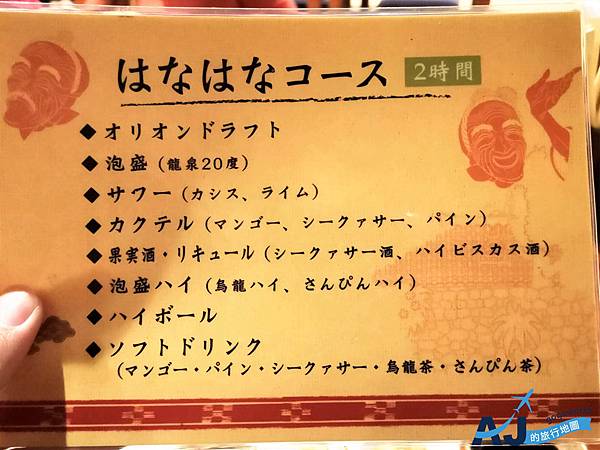 はなはなコース 2時間
◆オリオンドラフト
◆泡盛（龍泉20度）
◆サワー（カシス、ライム）
◆カクテル（マンゴー、シークァサー、パイン）
◆果実酒・リキュール（シークァサー酒、ハイビスカス酒）
◆泡盛ハイ（烏龍ハイ、さんぴんハイ）
◆ハイボール
◆ソフトドリンク
（マンゴー・パイン・シークァサー・烏龍茶・さんぴん茶）
AJ
的旅行地圖